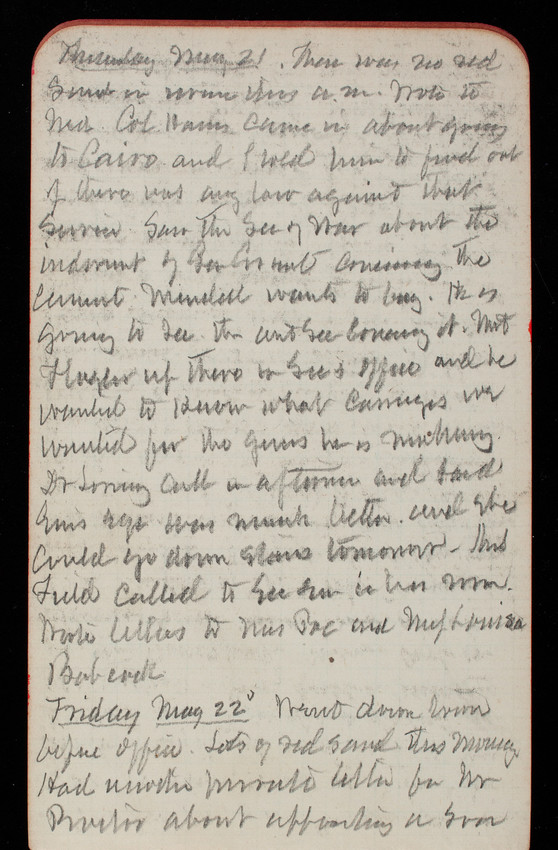 Thursday May 21. There was no red
Sand in urine this a.m. Wrote to
Ned. Col Hains came in about going
to Cairo and I told him to find out
if there was any law against that
Service. Saw the Sec of War about the
indorsmt of Gen concerning the
Cement Mendell wants to buy. He is
going to See the concerning it. Met
Flagler up there in Sec's office and he
wanted to know what carriages we
wanted for the guns he is making.
Dr Loring call in afternoon and said
Em's eye was much better. and she
Could go down stairs tomorrow - Mrs
Field called to see Em in her room.
Wrote letters to Mrs Poe and Miss Louisa
Babcock
Friday May 22d Went down town
before office. Lots of red sand this morning
Had another private letter from Mr
Proctor about appointing a Son